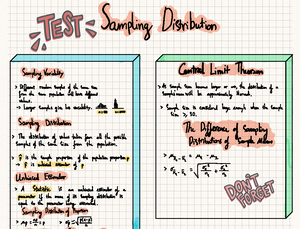 TEST
Sampling Distribution
Sampling Variability
> Different random samples of the same size
from the same population will have different
values.
> Larger samples give less variability.
Sampling Distribution
> The distribution of values taken from all the possible
samples of the same size from the population.
> p̂ is the sample proportion of the population proportion p
→ p̂ is unbiased estimator of p
Unbiased Estimator
> A statistic is an unbiased estimator of a
parameter if the mean of its sampling distribution is
equal to the parameter being estimated.
Sampling Distribution of Proportion
Central Limit Theorem
> As sample size becomes larger the distribution of
sample mean will be approximately Normal.
> Sample size is considered large enough when the sample
size ≥ 30.
The Difference of Sampling
Distributions of Sample Means
DON'T
FORGET